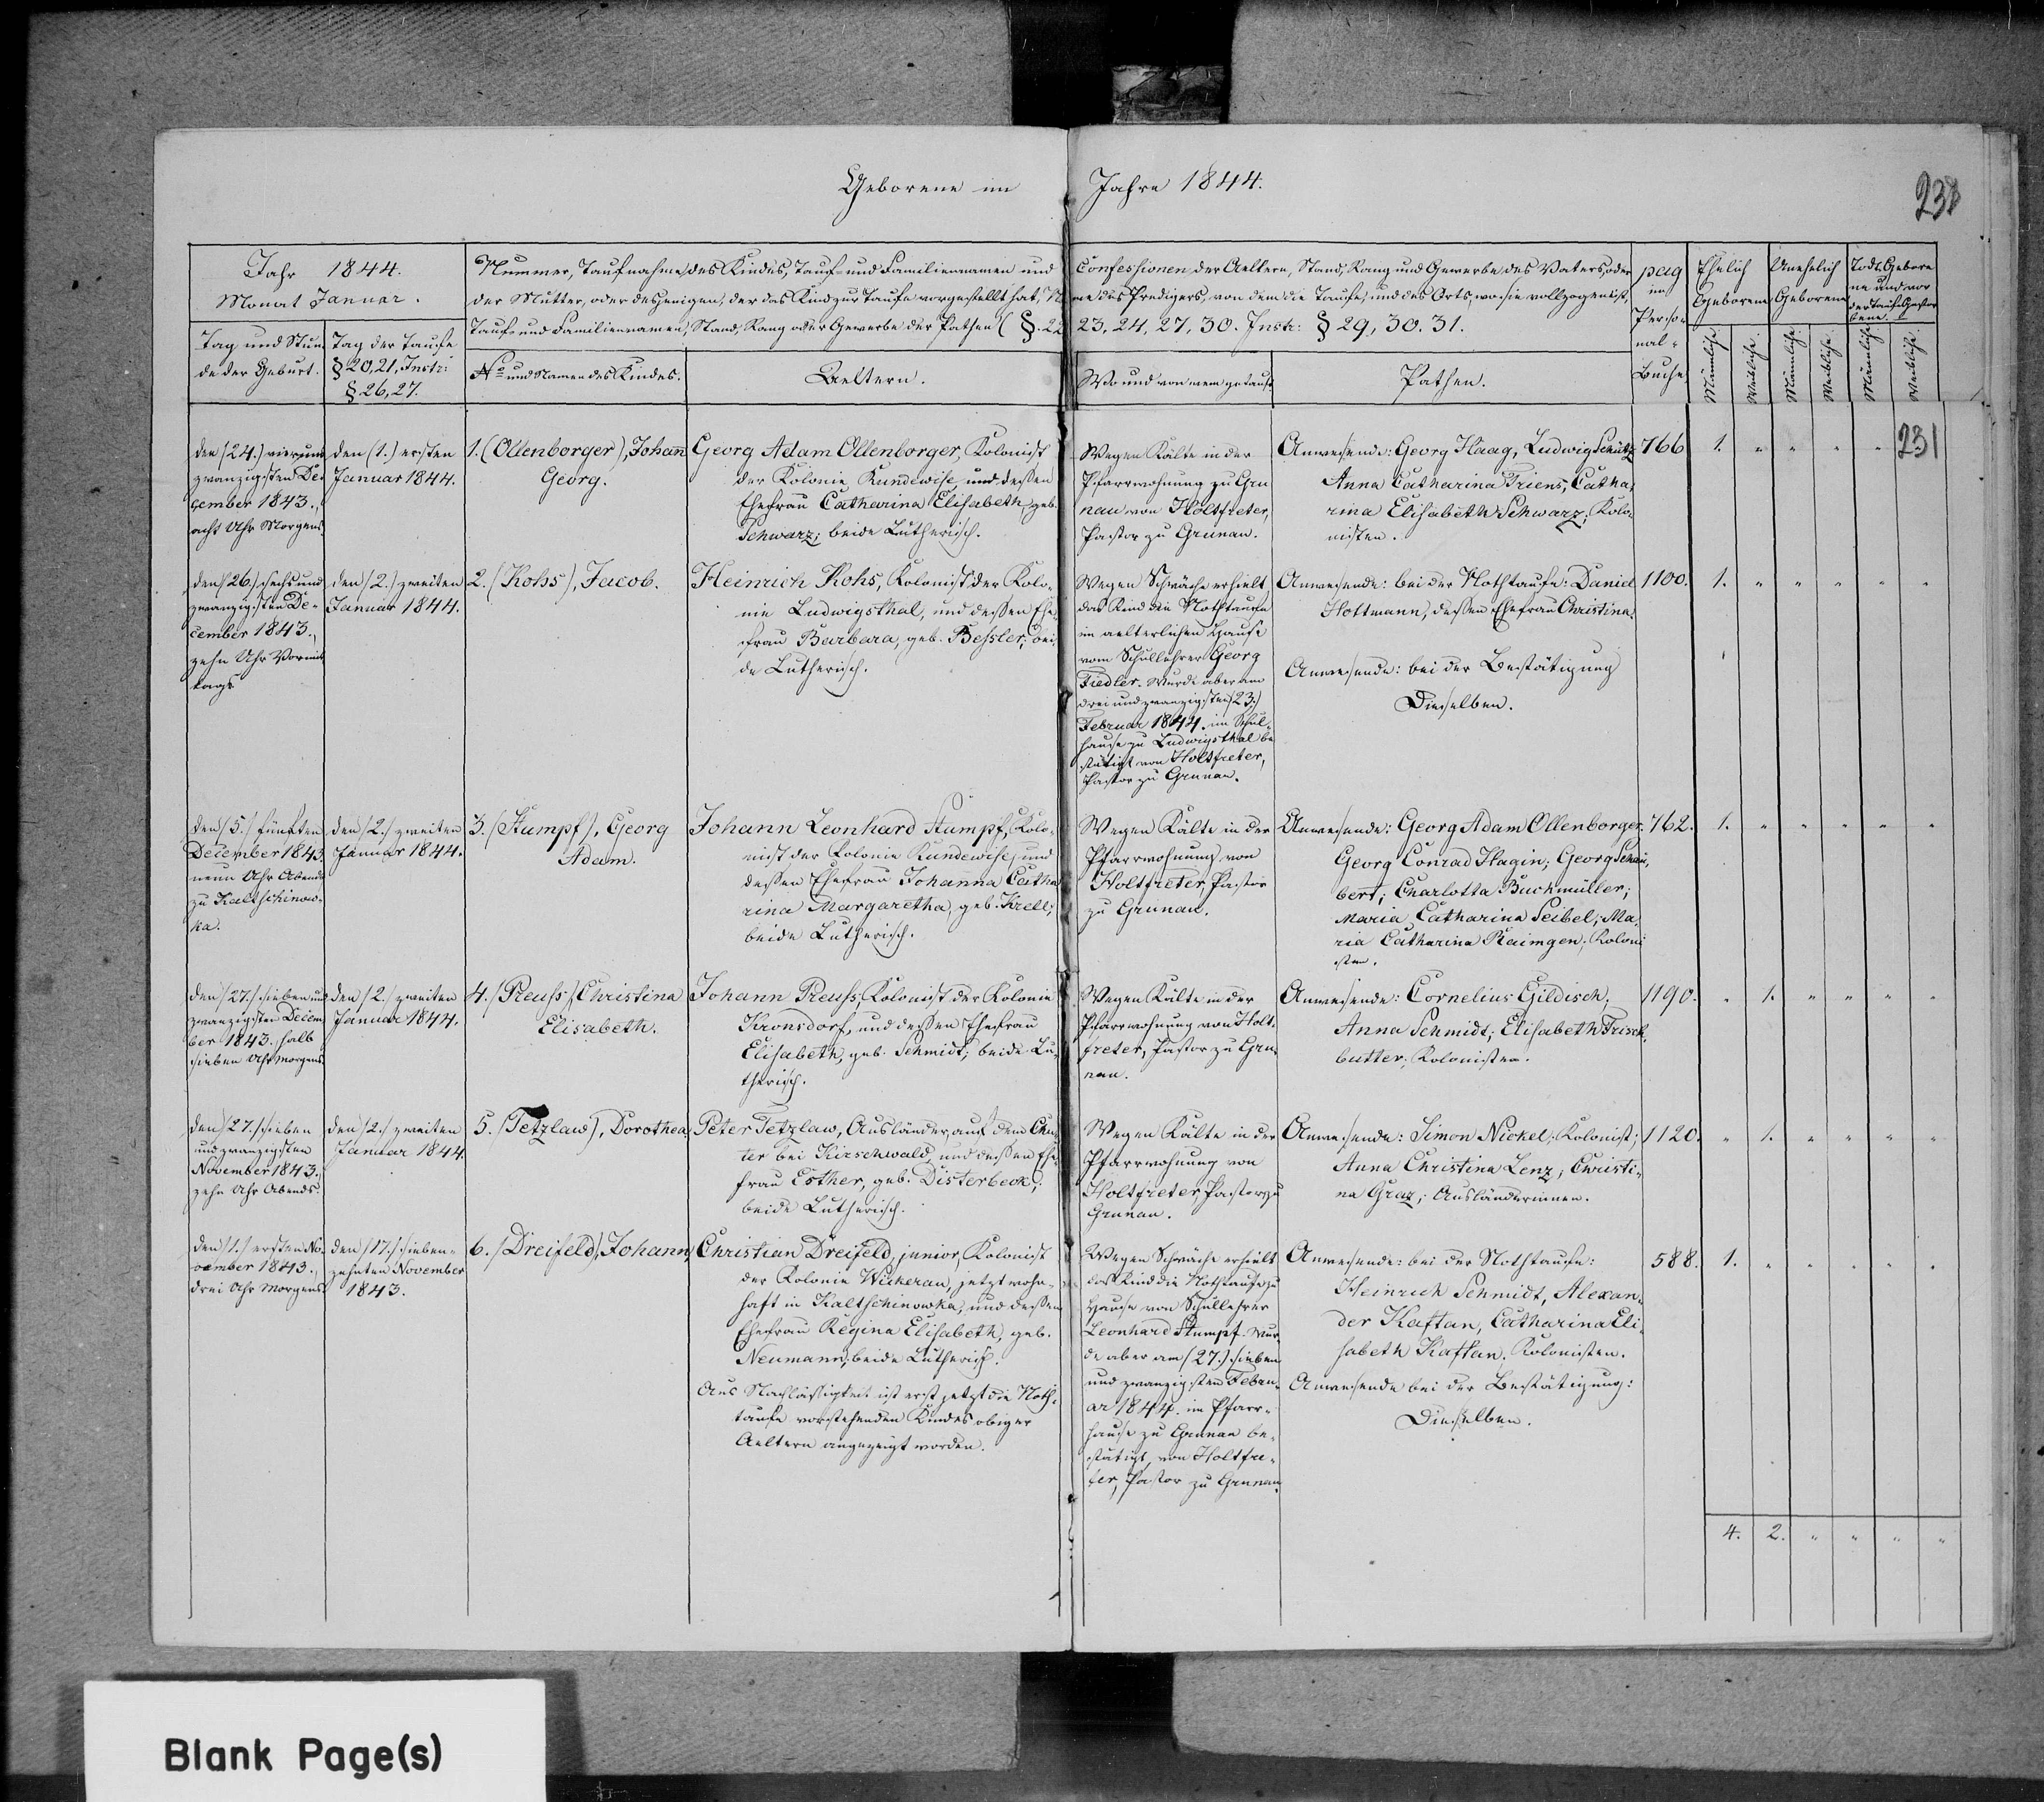 Geborene im Jahre 1844.
238
Jahr 1844.
Monat Januar.
Nummer, Taufnahme des Kindes, Tauf- und Familiennamen und Confessionen der Aeltern, Stand, Rang und Gewerbe des Vaters, oder
der Mutter, oder desjenigen, der das Kind zur Taufe vorgestellt hat, Na me des Predigers, von dem die Taufe, und des Orts, wo sie vollzogen ist,
Tauf- und Familiennamen, Stand, Rang oder Gewerbe der Pathen (§. 22 23, 24, 27, 30. Instr: § 29, 30. 31.
pag
im
Perso-
nal-
Buche
Ehelich
Geborene
Unehelich
Geborene
Todt Gebore
ne und vor
der Taufe Gestor
bene.
Männliche.
Weibliche.
Männliche.
Weibliche.
Männliche.
Weibliche.
Tag und Stun-
de der Geburt.
Tag der Taufe
§ 20, 21, Instr:
§ 26, 27.
No und Namen des Kindes.
Aeltern.
Wo und von wem getauft
Pathen.
den (24.) vierund
zwanzigsten De
cember 1843.,
acht Uhr Morgens
den (1.) ersten
Januar 1844.
1. (Ollenborger), Johann
Georg.
Georg Adam Ollenborger, Kolonist
der Kolonie Kundewise, und dessen
Ehefrau Catharina Elisabeth, geb.
Schwarz; beide Lutherisch.
Wegen Kälte in der
Pfarrwohnung zu Gru
nau von Holtfreter,
Pastor zu Grunau.
Anwesende: Georg Haag, Ludwig Schütz
Anna Catharina Friens, Catha,
rina Elisabeth Schwarz; Kolo
nisten.
766
1. " " " " 231
den (26.) sechs und
zwanzigsten De-
cember 1843.,
zehn Uhr Vormit
tags
den (2.) zweiten
Januar 1844.
2. (Kohs), Jacob.
Heinrich Kohs, Kolonist der Kolo-
nie Ludwigsthal, und dessen Ehe,
frau Barbara, geb. Bessler; bei
de Lutherisch.
Wegen Schwäche erhielt
das Kind die Nothtaufe
im aelterlichen Hause
vom Schullehrer Georg
Fiedler. Wurde aber am
drei und zwanzigsten (23.)
Februar 1844. im Schul-
hause zu Ludwigsthal be
stätigt von Holtfreter,
Pastor zu Grunau.
Anwesende: bei der Nothtaufe: Daniel
Hottmann, dessen Ehefrau Christina.
Anwesende: bei der Bestätigung
Dieselben.
1100.
1. " " " " "
den (5.) fünften
December 1843.
neun Uhr Abends
zu Kaltschinow-
ka.
den (2.) zweiten
Januar 1844.
3. (Stumpf), Georg
Adam.
Johann Leonhard Stumpf, Kolo-
nist der Kolonie Kundewise, und
dessen Ehefrau Johanna Catha
rina Margaretha, geb. Krell;
beide Lutherisch.
Wegen Kälte in der
Pfarrwohnung von
Holtfreter, Pastor
zu Grunau.
Anwesende: Georg Adam Ollenborger.
Georg Conrad Hagin; Georg Schu,
bert; Charlotta Buchmüller;
Maria Catharina Seibel; Ma,
ria Catharina Raimgen; Koloni
sten.
762.
1. " " " " "
den (27.) sieben und
zwanzigsten Decem
ber 1843., halb
sieben Uhr Morgens
den (2.) zweiten
Januar 1844.
4. (Preuss) Christina
Elisabeth.
Johann Preuss, Kolonist der Kolonie
Kronsdorf, und dessen Ehefrau
Elisabeth, geb. Schmidt; beide Lu-
therisch.
Wegen Kälte in der
Pfarrwohnung von Holt-
freter, Pastor zu Gru-
nau.
Anwesende: Cornelius Gildisch.
Anna Schmidt; Elisabeth Frisch,
butter; Kolonisten.
1190.
" 1. " " " "
den (27.) sieben
und zwanzigsten
November 1843.,
zehn Uhr Abends.
den (2.) zweiten
Januar 1844.
5. (Tetzlaw), Dorothea.
Peter Tetzlaw, Ausländer, auf dem Chu-
ter bei Kirschwald, und dessen Ehe-
frau Esther, geb. Disterbeck;
beide Lutherisch.
Wegen Kälte in der
Pfarrwohnung von
Holtfreter, Pastor zu
Grunau.
Anwesende: Simon Nickel; Kolonist;
Anna Christina Lenz; Christi-
na Graz; Ausländerinnen.
1120.
" 1. " " " "
den (1.) ersten No-
vember 1843.,
drei Uhr Morgens
den (17.) sieben-
zehnten November
1843.
6. (Dreifeld), Johann,
Christian Dreifeld, junior, Kolonist
der Kolonie Wickerau, jetzt wohn-
haft in Kaltschinowka, und dessen
Ehefrau Regina Elisabeth, geb.
Neumann; beide Lutherisch.
Aus Nachlässigkeit ist erst jetzt die Noth-
taufe vorstehenden Kindes obiger
Aeltern angezeigt worden.
Wegen Schwäche erhielt
das Kind die Nothtaufe zu
Hause von Schullehrer
Leonhard Stumpf. Wur
de aber am (27.) sieben
und zwanzigsten Febru-
ar 1844. im Pfarr-
hause zu Grunau be-
stätigt, von Holtfre-
ter, Pastor zu Grunau.
Anwesende: bei der Nothtaufe:
Heinrich Schmidt, Alexan-
der Kaftan, Catharina Eli-
sabeth Kaftan. Kolonisten.
Anwesende bei der Bestätigung:
Dieselben.
588.
1. " " " " "
4. 2. " " " "
Blank Page(s)